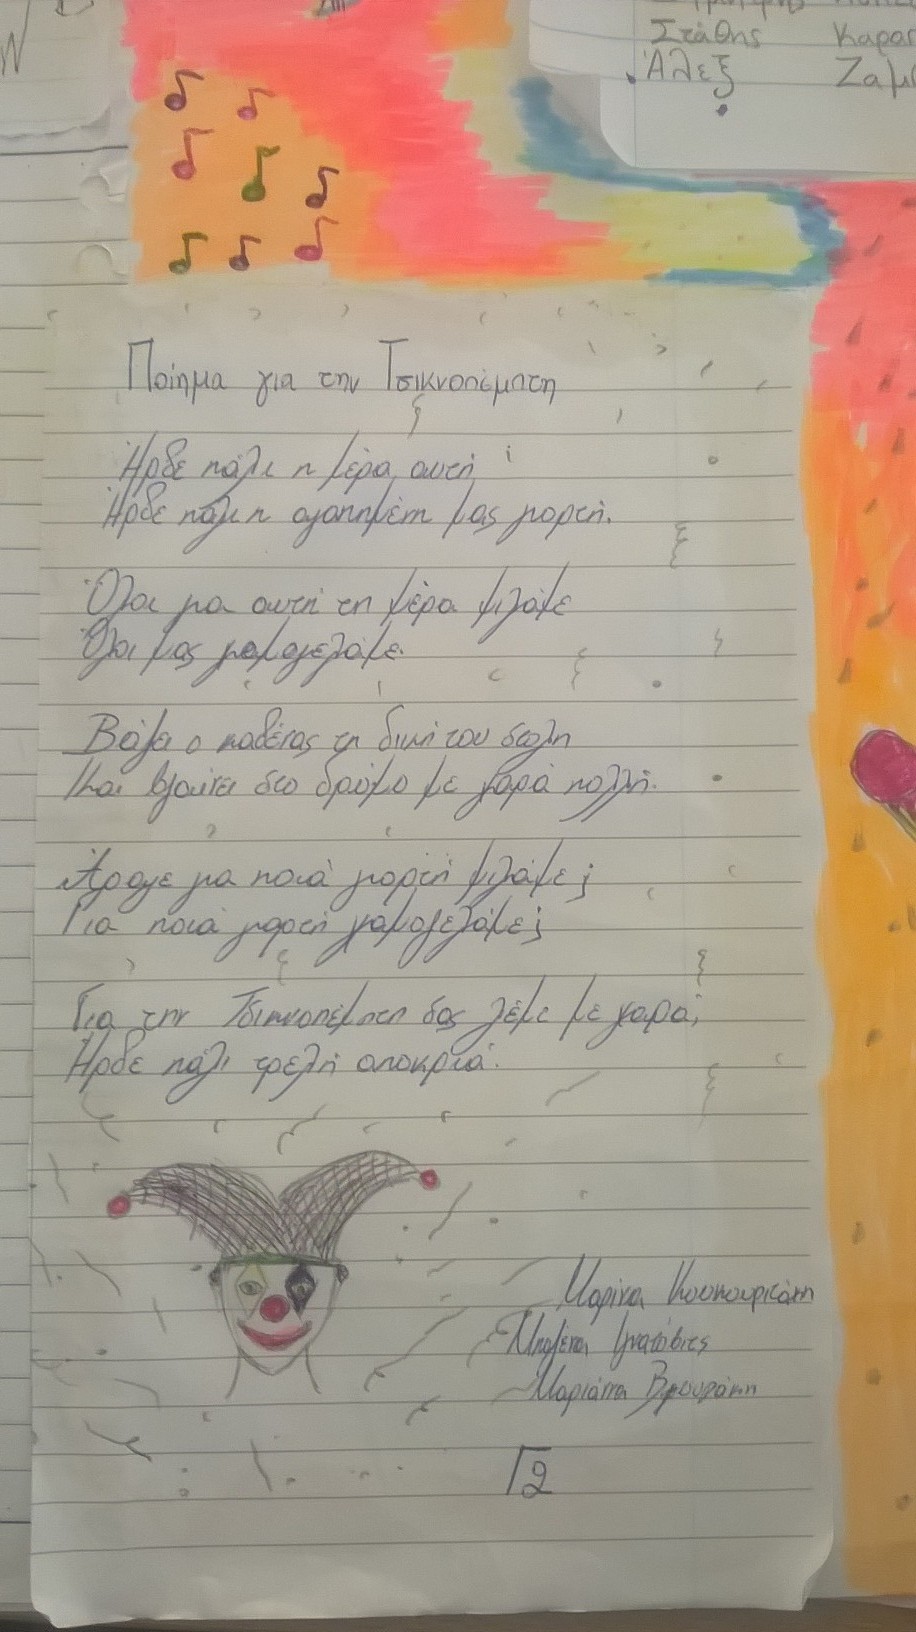 Στάθης Καρα
Άλεξ Ζαμ
Ποίημα για την Τσικνοπέμπτη
Ήρθε πάλι η μέρα αυτή
Ήρθε πάλι η αγαπημένη μας γιορτή.
Όλοι για αυτή τη μέρα μιλάμε
Όλοι μας χαμογελάμε.
Βάζει ο καθένας τη δική του στολή
Και βγαίνει στο δρόμο με χαρά πολλή.
Άραγε για ποιά γιορτή μιλάμε;
Για ποιά γιορτή χαμογελάμε;
Για την Τσικνοπέμπτη σας λέμε με χαρά,
Ήρθε πάλι τρελή αποκριά.
Μαρίνα
Μαριάννα
Γ2